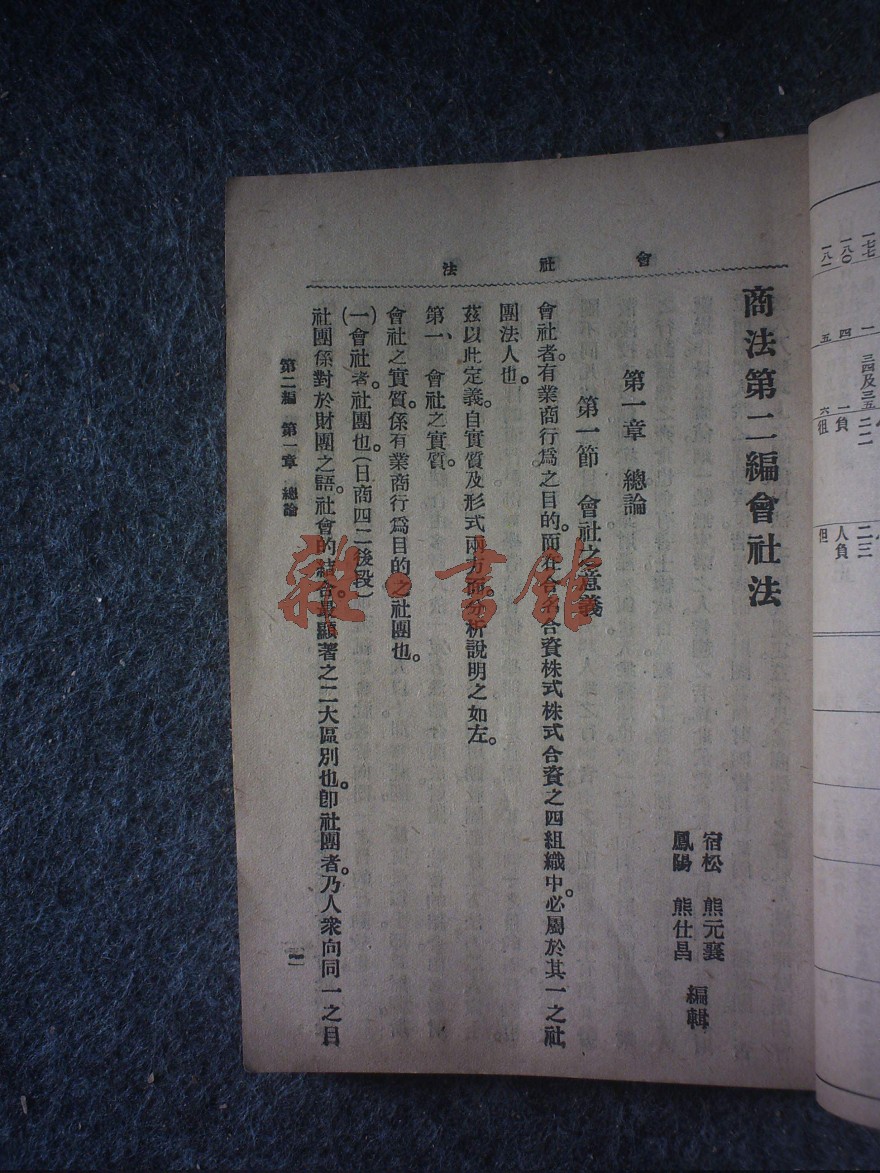 會社法
商法第二編會社法
宿松 熊元襄
鳳陽 熊仕昌
編輯
第一章 總論
第一節 會社之意義
會社者。有業商行爲之目的。而在合名合資株式株式合資之四組織中。必屬於其一之社
團法人也。
茲以此定義。自實質及形式兩方面。分析說明之如左。
第一、會社之實質。
會社之實質。係有業商行爲目的之社團也。
(一)會社者。社團也。(日商四二後段)
社團係對於財團之語。社會的結合。最顯著之二大區別也。卽社團者。乃人衆向同一之目
第二編 第一章 總論
一
一七七
一八〇
一八一
一
四
五
三四及三五
一
六
二二
負
徂
二三
人負
但